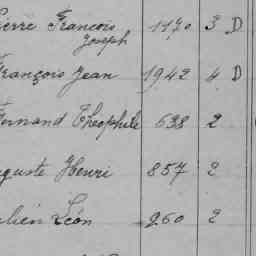 ierre François 1170 3 D
Joseph
rançois Jean 1942 4 D
ernand Théophile 638 2
guste Henri 857 2
ulien Léon 260 2